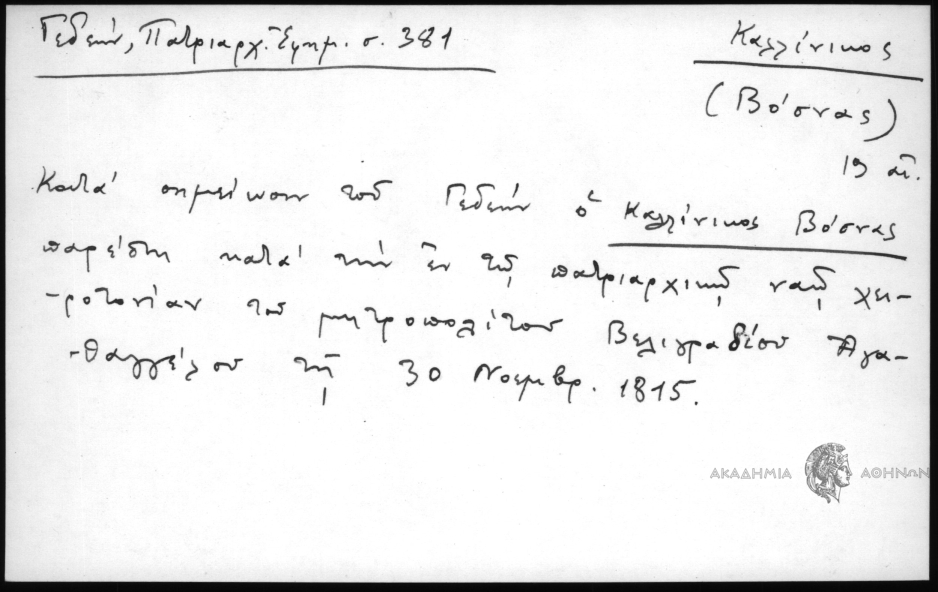 Γεδεών, Πατριαρχ. Ἐφημ. σ. 381
Καλλίνικος
(Βόσνας)
19 αἰ.
Κατά σημείωσιν τοῦ Γεδεών ὁ Καλλίνικος Βόσνας
παρέστη κατά τήν ἐν τῷ πατριαρχικῷ ναῷ χει-
-ροτονίαν του μητροπολίτου Βελιγραδίου Ἀγα-
-θαγγέλου τῇ 30 Νοεμβρ. 1815.
ΑΚΑΔΗΜΙΑ ΑΘΗΝΩΝ